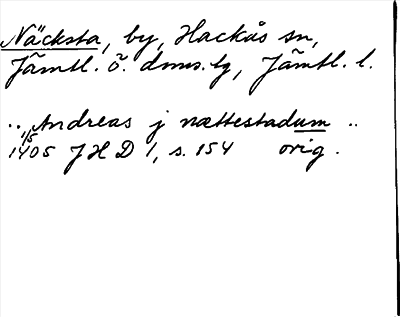 Näcksta, by, Hackås sn,
Jämtl. ö. dms.lg, Jämtl. l.
.. "Andreas j nættestadum ..
1/5
1405 JHD 1, s. 154 orig.